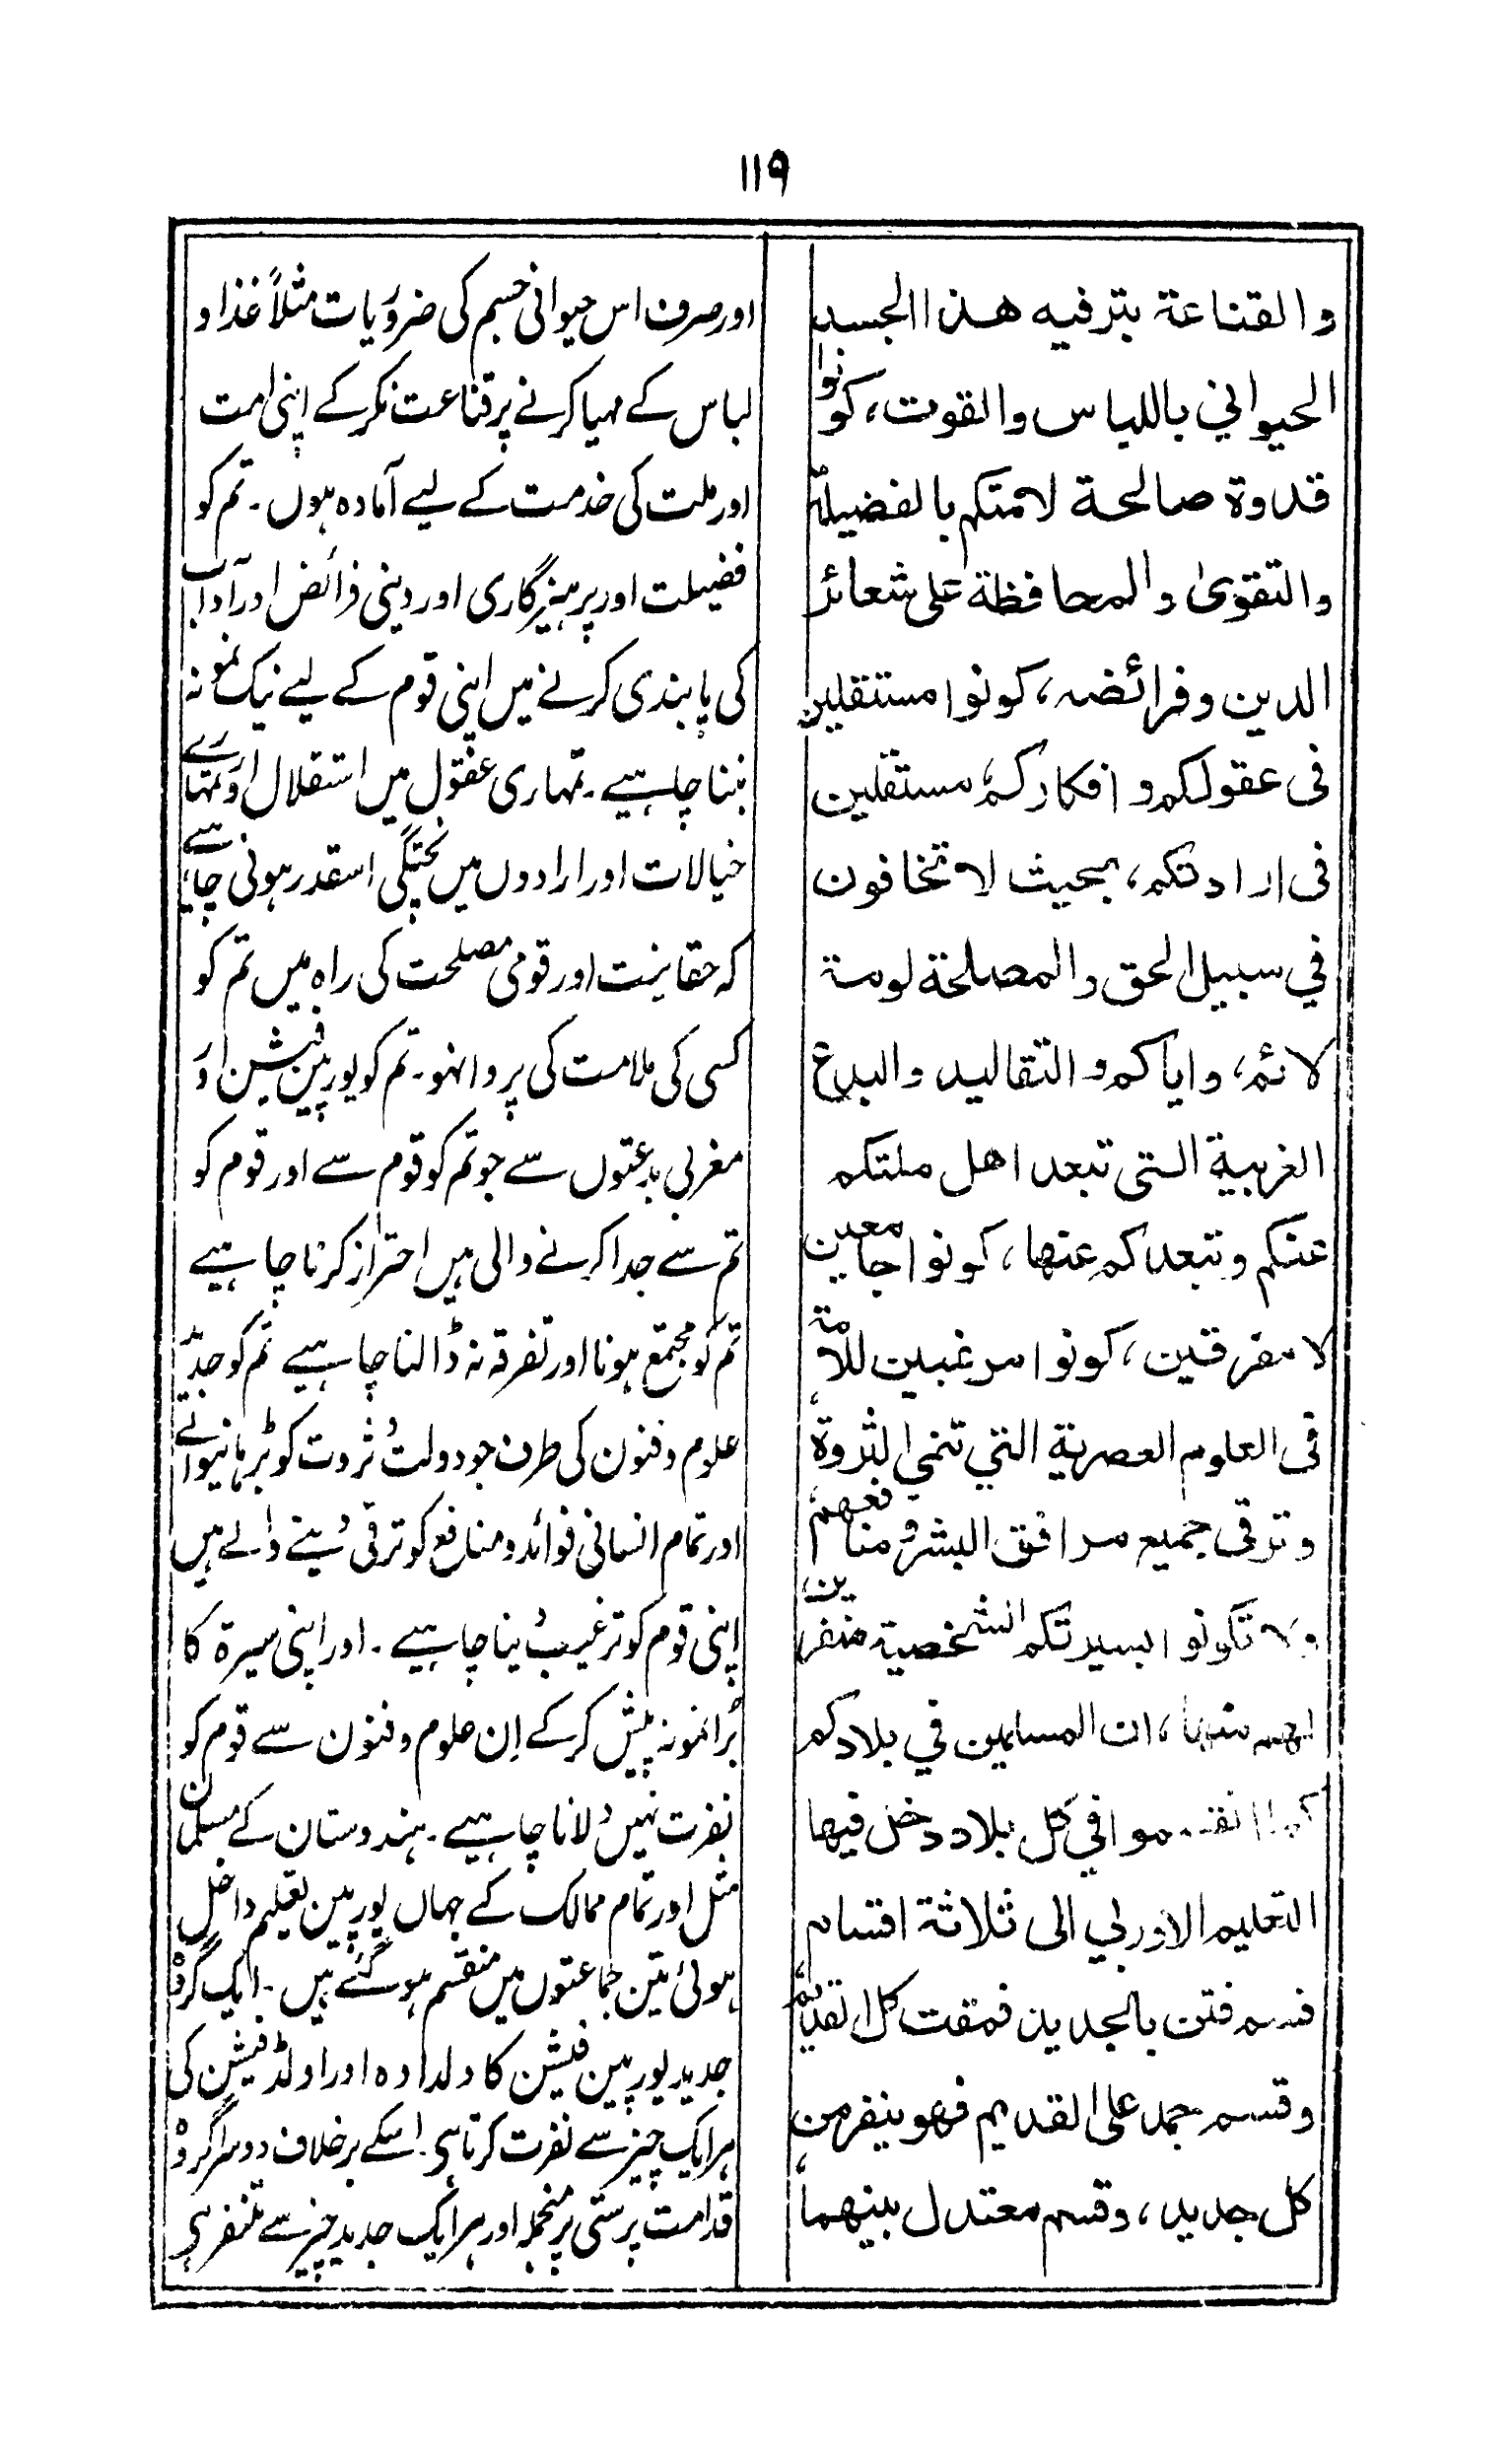 ۱۱۹
والقناعة بترفيه هذا الجسد
الحيواني باللباس والقوت، كونوا
قدوة صالحة لامتكم بالفضيلة
والتقوى والمحافظة على شعائر
الدين وفرائضه، كونوا مستقلين
فى عقولكم وافكاركم، مستقلين
فى ارادتكم، بحيث لا تخافون
في سبيل الحق والمصلحة لومة
لائم، واياكم والتقاليد والبدع
الغربية التى تبعد اهل ملتكم
عنكم وتبعدكم عنها، كونوا جامعين
لا مفرقين، كونوا مرغبين للأمة
فى العلوم العصرية التي تنمي الثروة،
وترقى جميع مرافق البشر ومنافعهم،
ولا تكونوا بسيرتكم الشخصية منفرين
لهم منها، ان المسلمين في بلادكم
كما انقسموا في كل بلاد دخل فيها
التعليم الاوربي الى ثلاثة اقسام
قسم فتن بالجديد فمقت كل القديم،
وقسم جمد على القديم فهو ينفر من
كل جديد، وقسم معتدل بينهما،
اور صرف اس حیوانی جسم کی ضروریات مثلاً غذا و
لباس کے مہیا کرنے پر قناعت نکرکے اپنی امت
اور ملت کی خدمت کے لیے آمادہ ہوں۔ تم کو
فضیلت اور پرہیزگاری اور دینی فرائض اور آداب
کی پابندی کرنے میں اپنی قوم کے لیے نیک نمونہ
بننا چاہیے۔ تمہاری عقول میں استقلال اور تمہارے
خیالات اور ارادوں میں پختگی اسقدر ہونی چاہیے
کہ حقانیت اور قومی مصلحت کی راہ میں تم کو
کسی کی ملامت کی پروا نہو۔ تم کو یورپین فیشن اور
مغربی بدعتوں سے جو تم کو قوم سے اور قوم کو
تم سے جدا کرنے والی ہیں احتراز کرنا چاہیے
تم کو مجتمع ہونا اور تفرقہ نہ ڈالنا چاہیے تم کو جدید
علوم و فنون کی طرف جو دولت و ثروت کو بڑہانیوالے
اور تمام انسانی فوائد و منافع کو ترقی دینے والے ہیں
اپنی قوم کو ترغیب دینا چاہیے۔ اور اپنی سیرۃ کا
بُرا نمونہ پیش کرکے اِن علوم و فنون سے قوم کو
نفرت نہیں دلانا چاہیے۔ ہندوستان کے مسلمان
مثل اور تمام ممالک کے جہاں یورپین تعلیم داخل
ہوئی تین جماعتوں میں منقسم ہوگئے ہیں۔ ایک گروہ
جدید یورپین فیشن کا دلدادہ اور اولڈ فیشن کی
ہر ایک چیز سے نفرت کرتا ہی۔ اسکے برخلاف دوسرا گروہ
قدامت پرستی پر منجمد اور ہر ایک جدید چیز سے متنفر ہی